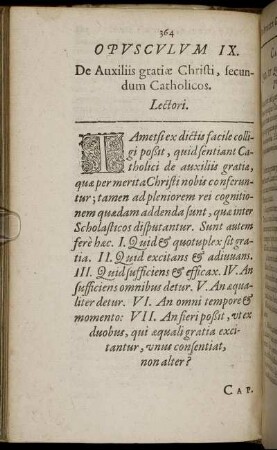 364
OPVSCVLVM IX.
De Auxiliis gratiæ Christi, secun-
dum Catholicos.
Lectori.
TAmetsi ex dictis facile colli-
gi possit, quid sentiant Ca-
tholici de auxiliis gratiæ,
quæ per merita Christi nobis conferun-
tur; tamen ad pleniorem rei cognitio-
nem quædam addenda sunt, quæ inter
Scholasticos disputantur. Sunt autem
ferè hæc. I. Quid & quotuplex sit gra-
tia. II. Quid excitans & adiuuans.
III. Quid sufficiens & efficax. IV. An
sufficiens omnibus detur. V. An æqua-
liter detur. VI. An omni tempore &
momento: VII. An fieri possit, vt ex
duobus, qui æquali gratia exci-
tantur, vnus consentiat,
non alter?
CAP.